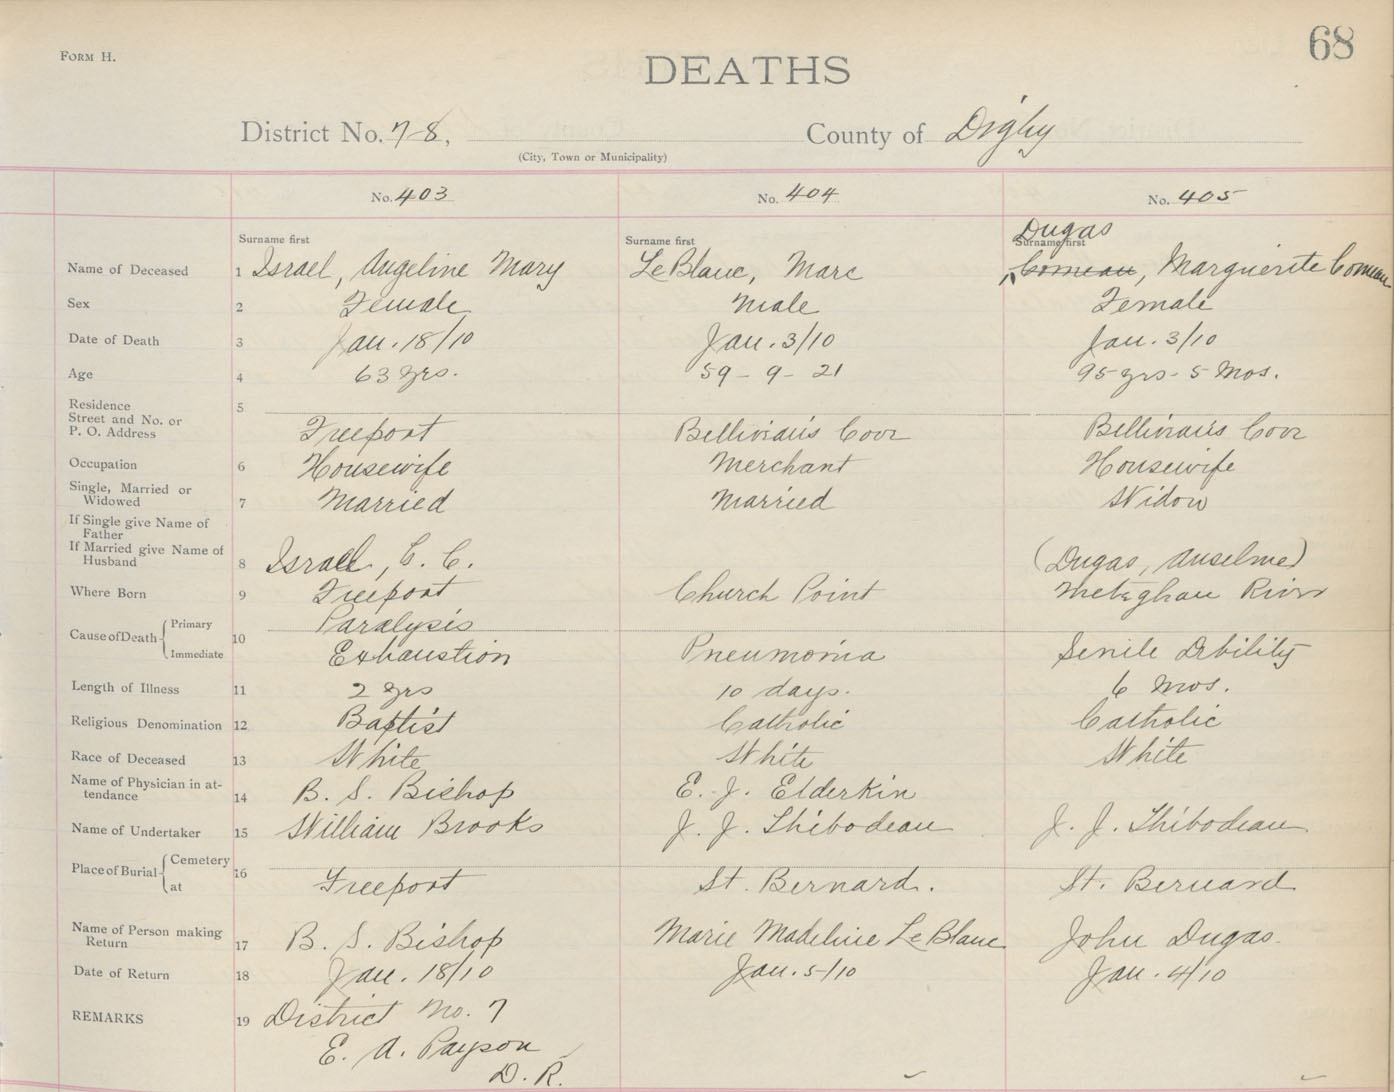 FORM H.
68
DEATHS
District No. 7-8, County of Digby
(City, Town or Municipality)
No. 403 No. 404 No. 405
Dugas
Surname first Surname first Surname first
Name of Deceased 1 Israel, Angeline Mary LeBlanc, Marc Comeau, Marguerite Comeau
Sex 2 Female Male Female
Date of Death 3 Jan. 18/10 Jan. 3/10 Jan. 3/10
Age 4 63 yrs. 59 - 9 - 21 95 yrs - 5 Mos.
Residence 5
Street and No. or
P. O. Address Freeport Belliveau's Cove Belliveau's Cove
Occupation 6 Housewife Merchant Housewife
Single, Married or
Widowed 7 Married Married Widow
If Single give Name of
Father
If Married give Name of
Husband 8 Israel, C. C. (Dugas, Anselme)
Where Born 9 Freeport Church Point Meteghan River
Cause of Death Primary 10 Paralysis
Immediate Exhaustion Pneumonia Senile Debility
Length of Illness 11 2 yrs 10 days. 6 Mos.
Religious Denomination 12 Baptist Catholic Catholic
Race of Deceased 13 White White White
Name of Physician in at-
tendance 14 B. S. Bishop E. J. Elderkin
Name of Undertaker 15 William Brooks J. J. Thibodeau J. J. Thibodeau
Place of Burial Cemetery 16
at Freeport St. Bernard. St. Bernard
Name of Person making
Return 17 B. S. Bishop Marie Madeline LeBlanc John Dugas.
Date of Return 18 Jan. 18/10 Jan. 5/10 Jan. 4/10
REMARKS 19 District No. 7
E. A. Payson
D. R.